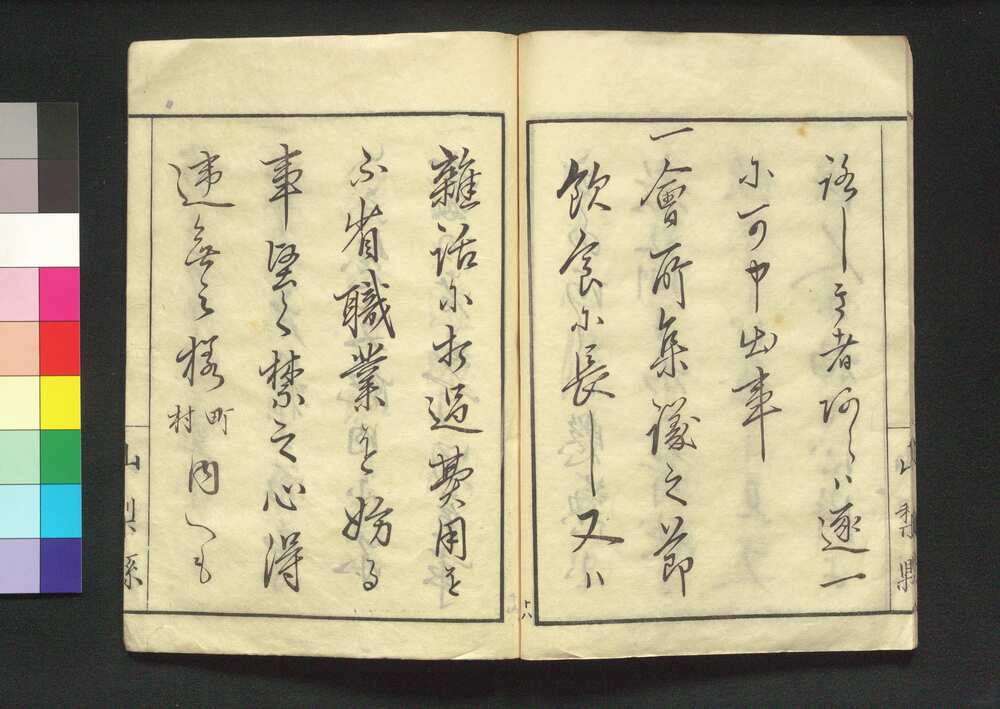 洩しき者阿らハ逐一
尓可申出事
一會所集議之節
飲食尓長し又ハ
雜話尓打過費用を
不省職業を妨る
事堅く禁之心得
違無之様町村内へも
山梨縣
山梨縣
十八